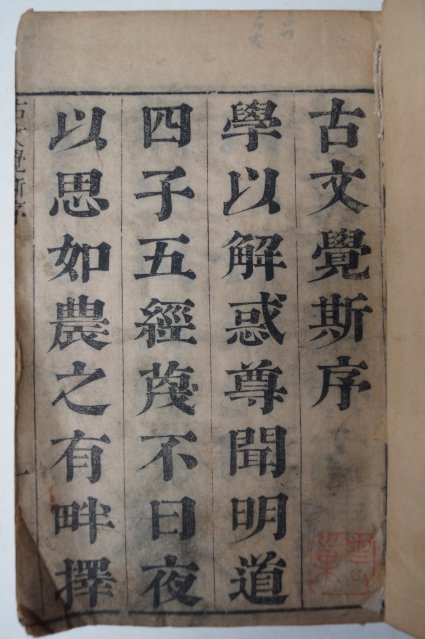 古文覺斯序
學以解惑尊聞明道
四子五經茂不日夜
以思如農之有畔擇
古文覺斯序
一